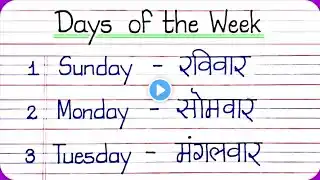 Days of the Week
1 Sunday - रविवार
2 Monday - सोमवार
3 Tuesday - मंगलवार